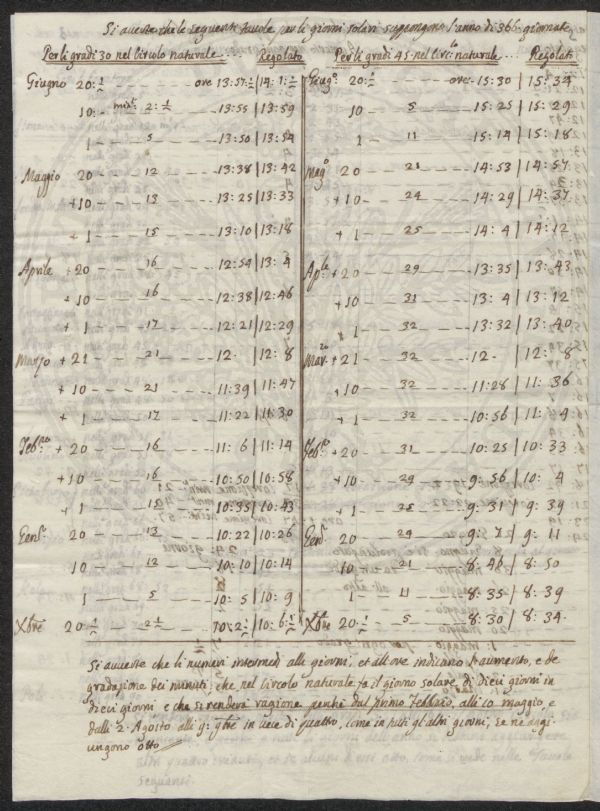 Si avverte che le seguenti tavole per li giorni solari suppongono l'anno di 366 giornate
Per li gradi 30 nel Circolo naturale... Regolato Per li gradi 45 nel Circ.lo naturale... Regolati
Giugno 20:½ ore 13:57:½ 14:1:½ Giug.o 20:½ ore: 15:30 15:34
10: min.ti 2:½ 13:55 13:59 10 5 15:25 15:29
1 5 13:50 13:54 1 11 15:14 15:18
Maggio 20 12 13:38 13:42 Mag.o 20 21 14:53 14:57
+10 13 13:25 13:33 +10 24 14:29 14:37
+1 15 13:10 13:18 +1 25 14:4 14:12
Aprile +20 16 12:54 13:4 Ap.le +20 29 13:35 13:43
+10 16 12:38 12:46 +10 31 13:4 13:12
+1 17 12:21 12:29 1 32 13:32 13:40
Marzo +21 21 12. 12:8 Mar.zo +21 32 12. 12:8
+10 21 11:39 11:47 +10 32 11:28 11:36
+1 17 11:22 11:30 +1 32 10:56 11:4
Feb.ro +20 16 11:6 11:14 Feb.o +20 31 10:25 10:33
+10 16 10:50 10:58 +10 29 9:56 10:4
+1 15 10:35 10:43 +1 25 9:31 9:39
Genn.o 20 13 10:22 10:26 Genn.o 20 24 9:7 9:11
10 12 10:10 10:14 10 21 8:46 8:50
1 5 10:5 10:9 1 11 8:35 8:39
Xbre 20:½ 2½ 10:2½ 10:6:½ Xbre 20:½ 5 8:30 8:34.
Si avverte che li numeri intermedi alli giorni, et all'ore indicano l'aumento, e de
gradazione dei minuti, che nel Circolo naturale fa il giorno solare di dieci giorni in
dieci giorni e che si renderà ragione perché dal primo Febbraro, alli 10 maggio, e
dalli 2. Agosto alli 9: 9bre in vece di quattro, come in tutti gli altri giorni, se ne aggi
ungono otto